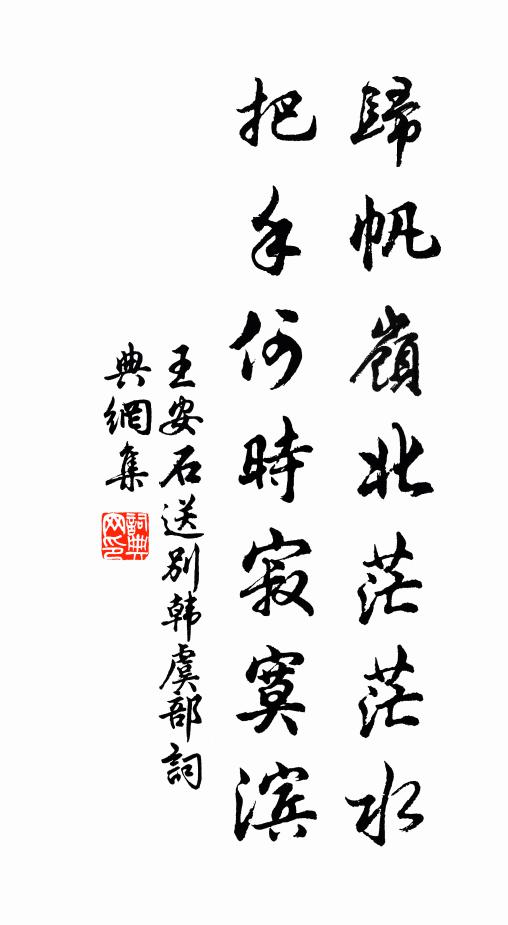 歸帆嶺北茫茫水
把手何時寂寞滨
王安石送别韩虞部詞
典網集
詞典網印